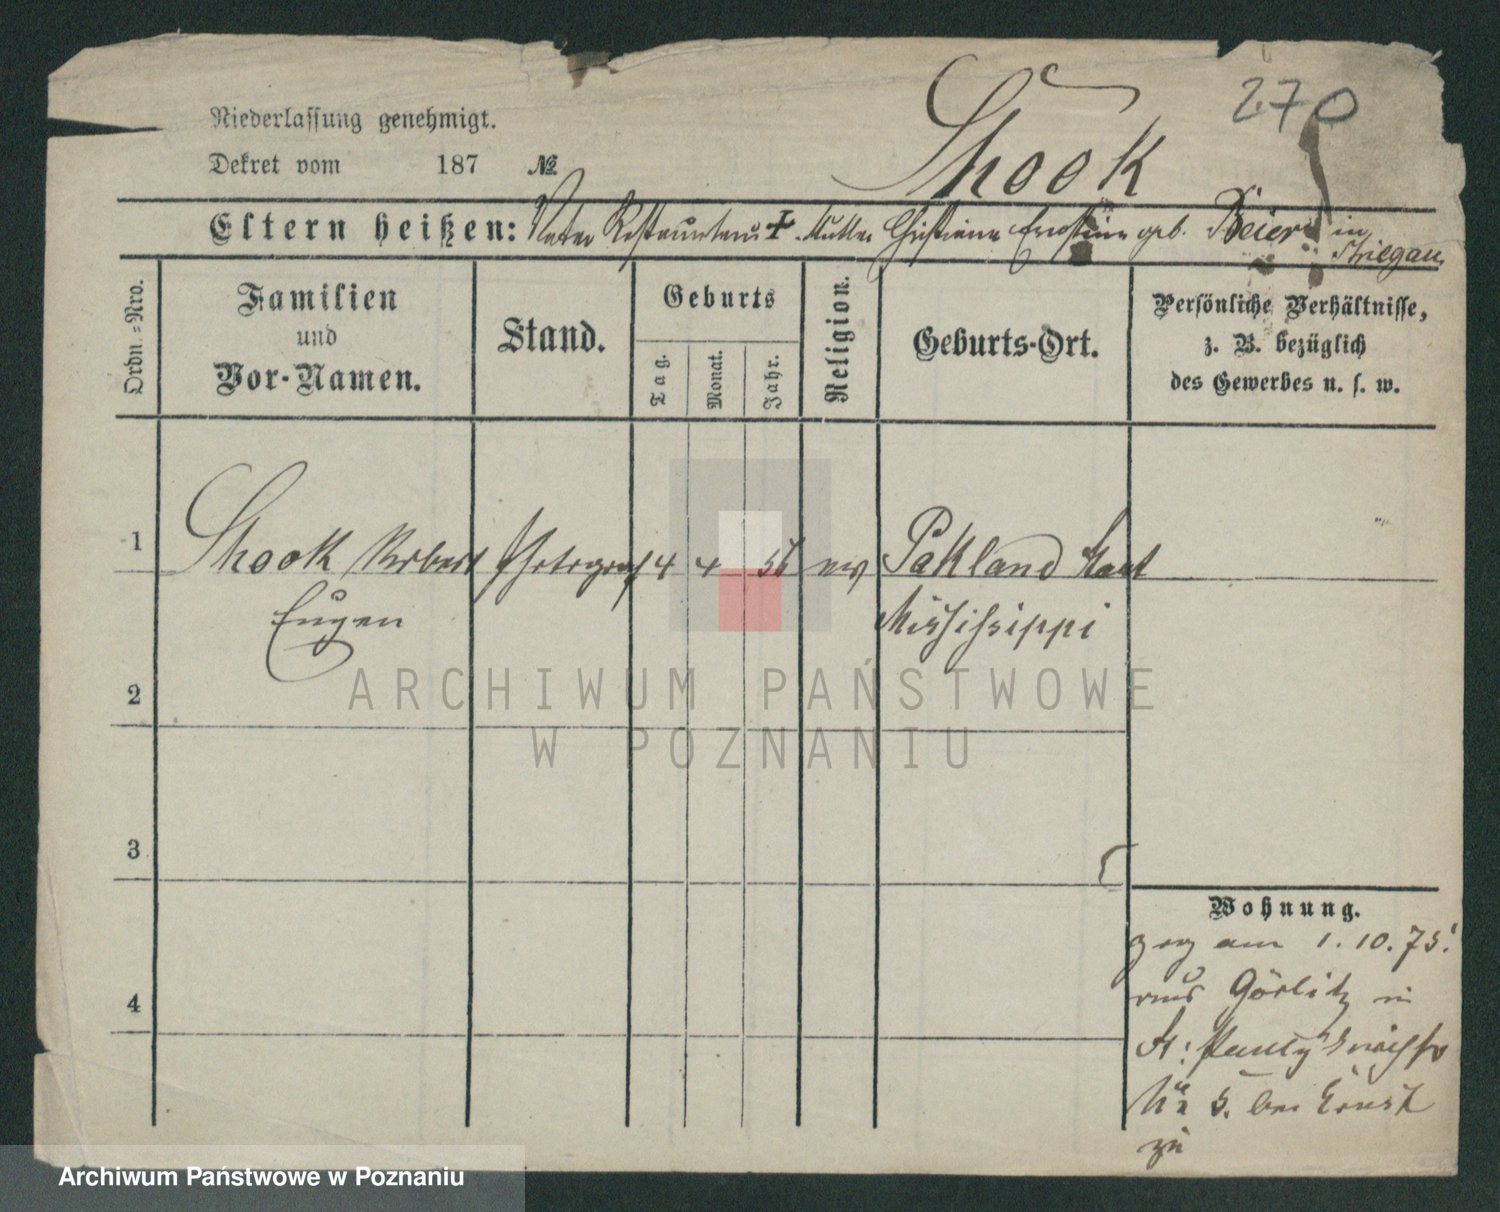 270
Shook
Niederlassung genehmigt.
Dekret vom 187 №
Eltern heißen: Vater Restaurateur † Mutter Christiane Ernestine geb. Beier in
Striegau
Ordn.-Nro.
Familien
und
Vor-Namen.
Stand.
Geburts
Tag.
Monat.
Jahr.
Religion.
Geburts-Ort.
Persönliche Verhältnisse,
z. B. bezüglich
des Gewerbes u. s. w.
1 Shook Robert Photograf 4 4 56 ev Pakland Staat
Eugen Mississippi
2
3
4
ARCHIWUM PAŃSTWOWE
W POZNANIU
Wohnung.
zog am 1. 10. 75.
aus Görlitz in
St:
№ 5. bei Ernst
zu
Archiwum Państwowe w Poznaniu